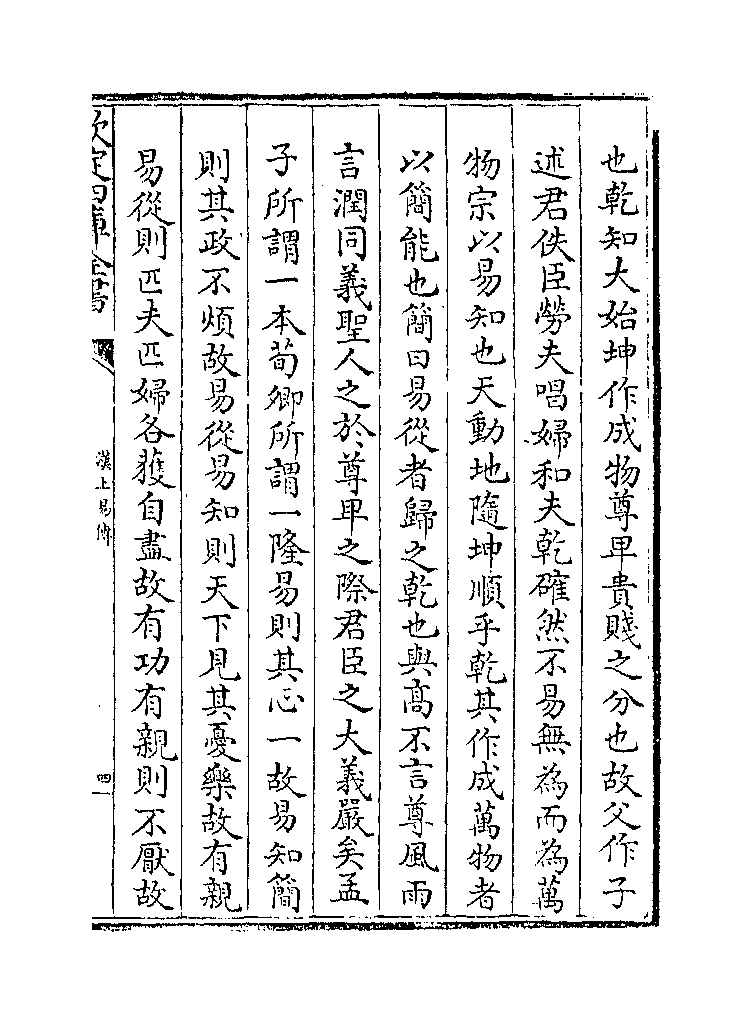 也乾知大始坤作成物尊卑貴賤之分也故父作子
述君佚臣勞夫唱婦和夫乾確然不易無為而為萬
物宗以易知也天動地隨坤順乎乾其作成萬物者
以簡能也簡曰易從者歸之乾也與高不言尊風雨
言潤同義聖人之於尊卑之際君臣之大義嚴矣孟
子所謂一本荀卿所謂一隆易則其心一故易知簡
則其政不煩故易從易知則天下見其憂樂故有親
易從則匹夫匹婦各獲自盡故有功有親則不厭故
欽定四庫全書
漢上易傳
四